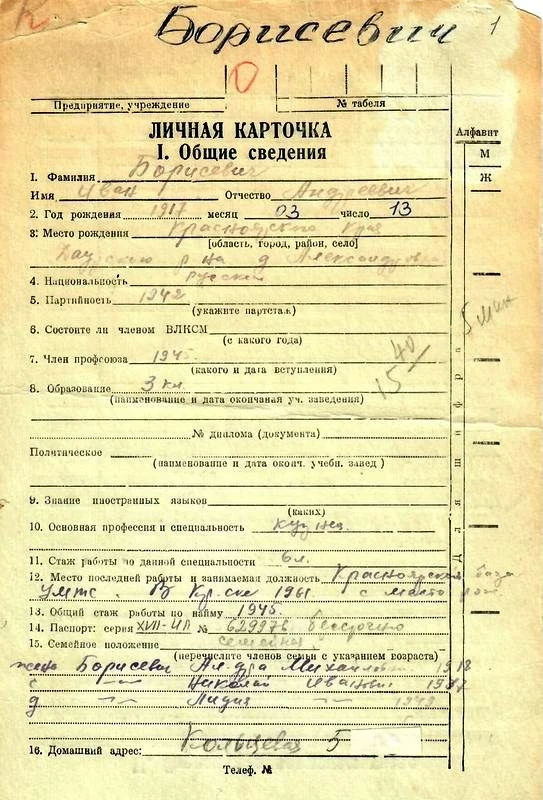 Борисевич 1
Предприятие, учреждение № табеля
ЛИЧНАЯ КАРТОЧКА
I. Общие сведения
Алфавит
М
Ж
1. Фамилия Борисевич
Имя Иван Отчество Андреевич
2. Год рождения 1917 месяц 03 число 13
3. Место рождения Красноярского края
[область, город, район, село]
Даурский р на д Александровка
4. Национальность русский
5. Партийность 1942
(укажите партстаж)
6. Состоите ли членом ВЛКСМ
(с какого года)
7. Член профсоюза 1945
(какого и дата вступления)
40
15
5 мин
8. Образование 3 кл.
(наименование и дата окончания уч. заведения)
№ диплома (документа)
Политическое
(наименование и дата оконч. учебн. завед)
9. Знание иностранных языков
(каких)
10. Основная профессия и специальность кузнец
11. Стаж работы по данной специальности 6 л.
12. Место последней работы и занимаемая должность Красноярская база
УМТС. В 1961 с
13. Общий стаж работы по найму 1945
14. Паспорт: серия XVII-ИЛ № бессрочно
15. Семейное положение семейный
(перечислите членов семьи с указанием возраста)
жена Борисевич Ал-дра Михайловна 1918
с —„— Николай Иванович
д —„— Лидия —„—
16. Домашний адрес: Кольцевая 5
Телеф. №
Для шифра